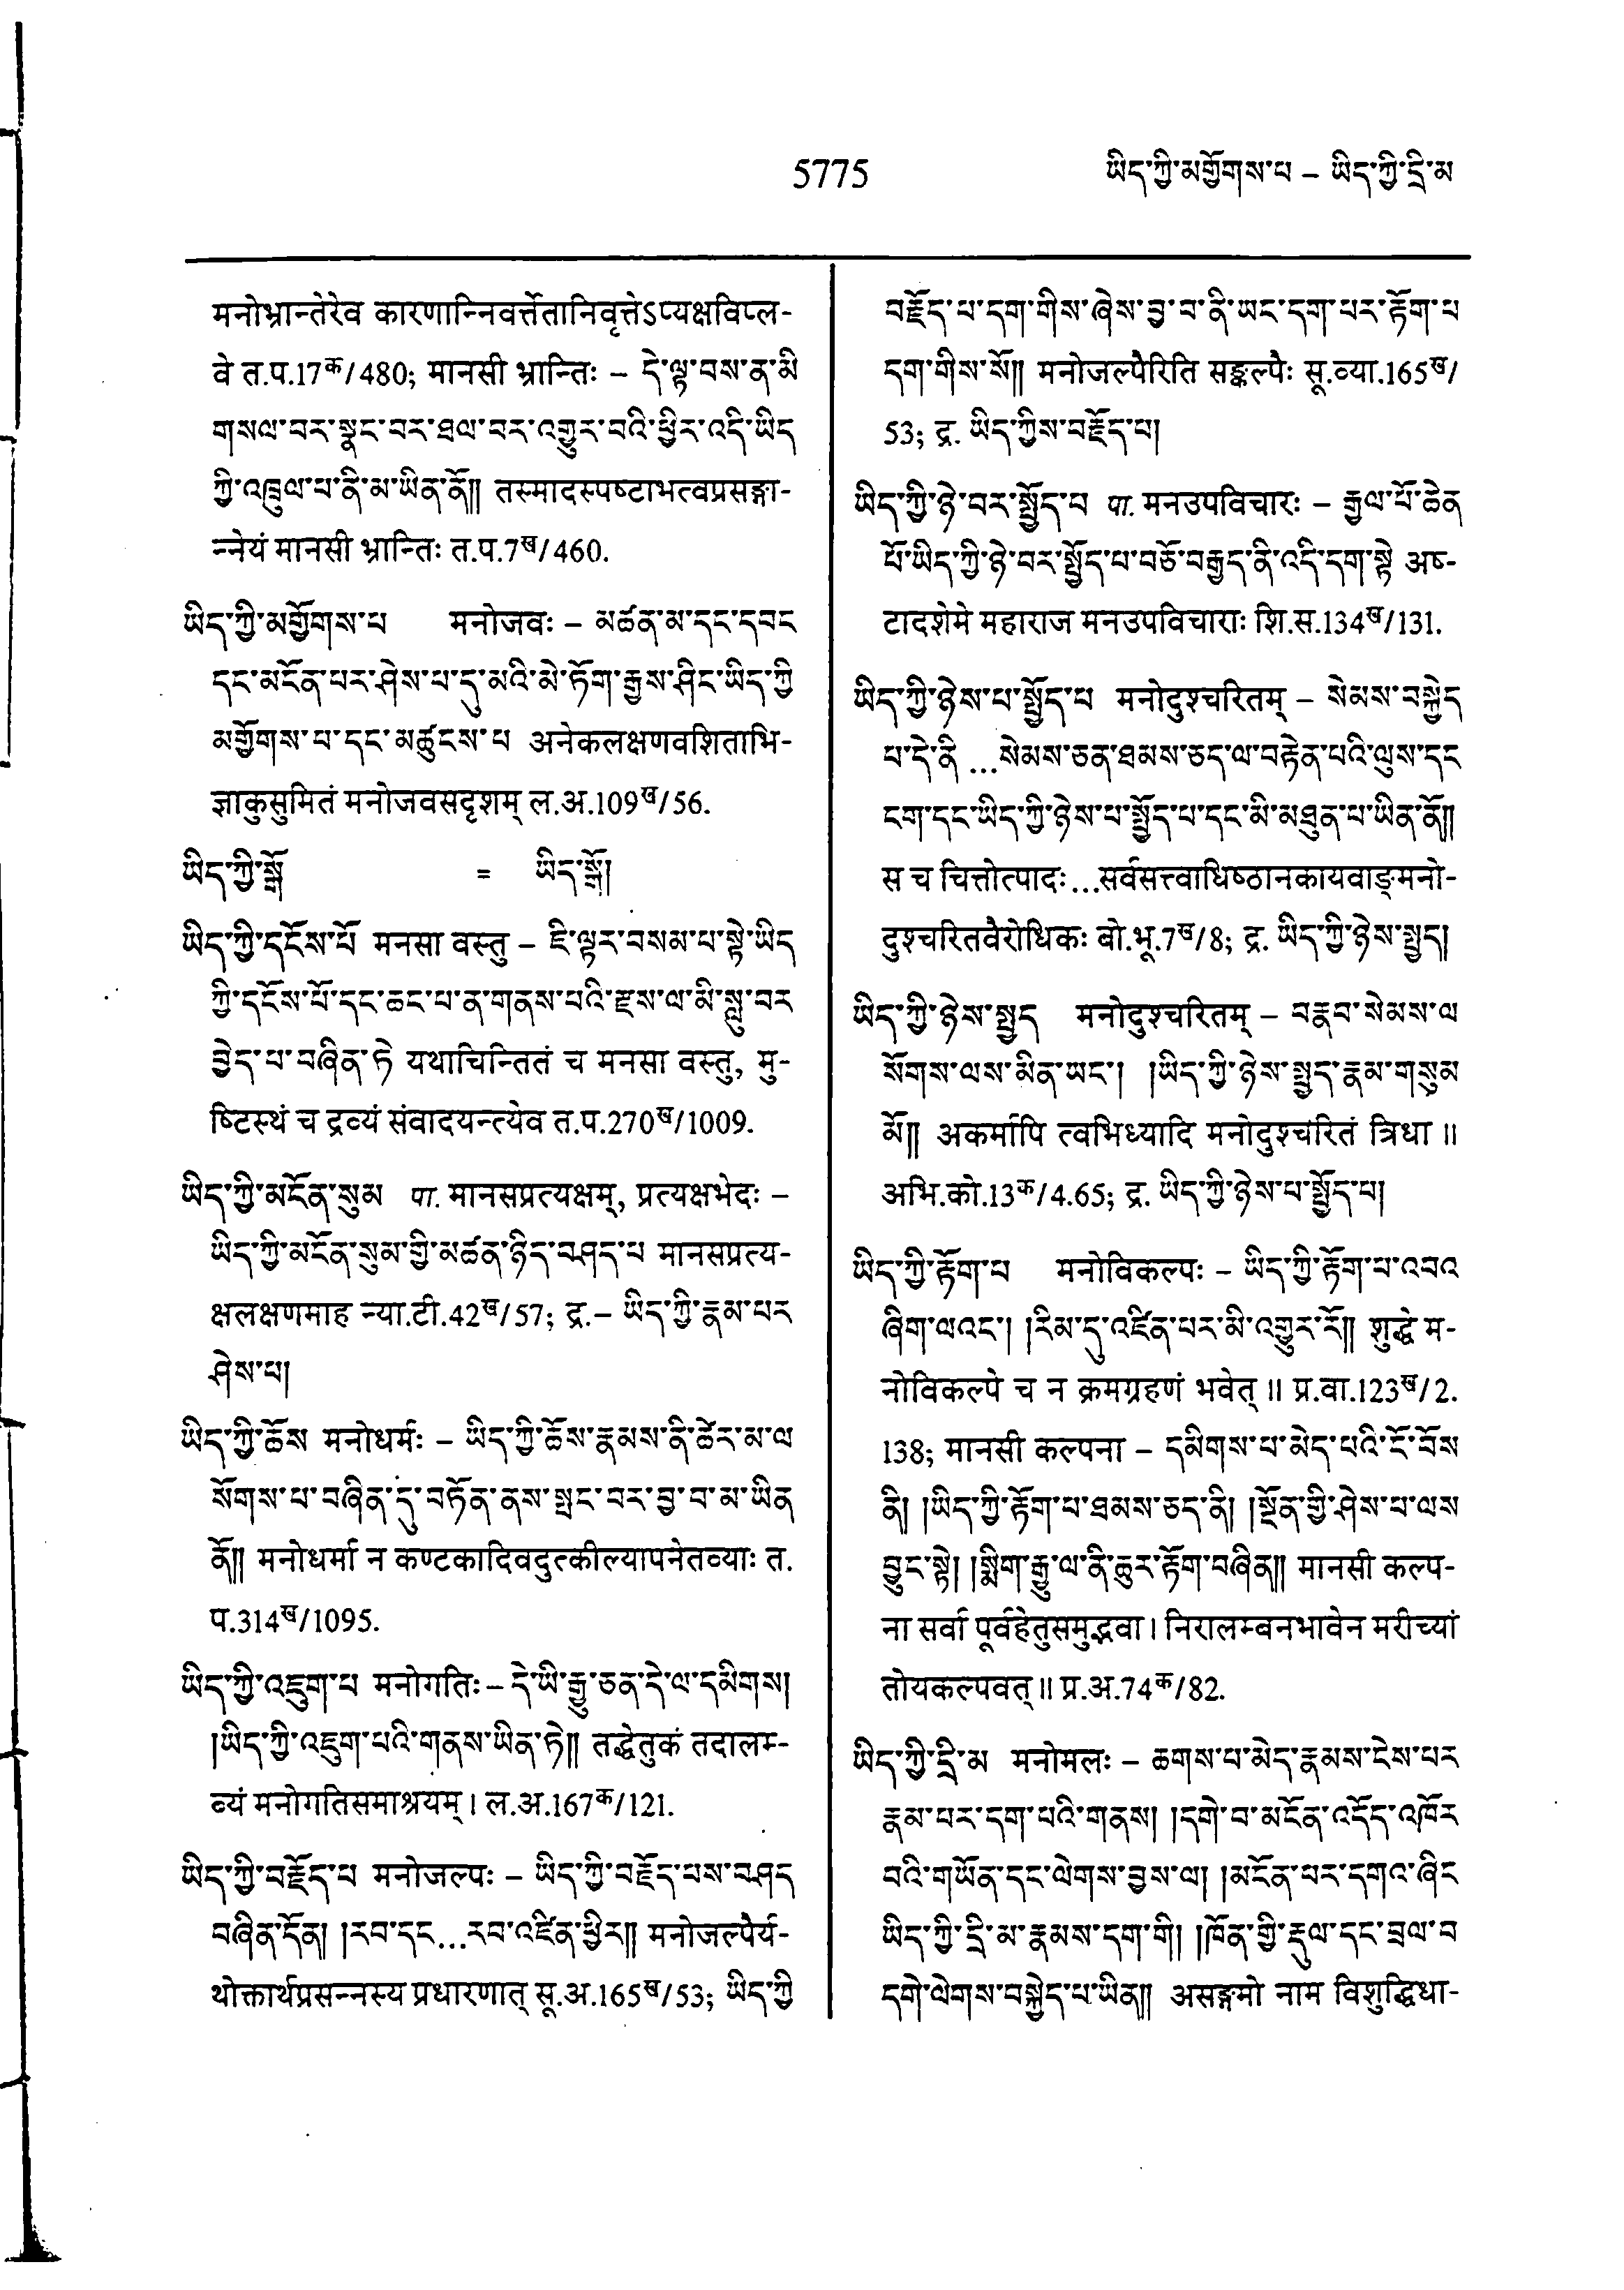 5775
ཡིད་ཀྱི་མགྱོགས་པ – ཡིད་ཀྱི་དྲི་མ
मनोभ्रान्तेरेव कारणान्निवर्त्तेतानिवृत्तेऽप्यक्षविप्ल-
वे त.प.17क/480; मानसी भ्रान्तिः – དེ་ལྟ་བས་ན་མི
གསལ་བར་སྣང་བར་ཐལ་བར་འགྱུར་བའི་ཕྱིར་འདི་ཡིད
ཀྱི་འཁྲུལ་པ་ནི་མ་ཡིན་ནོ།། तस्मादस्पष्टाभत्वप्रसङ्गा-
न्नेयं मानसी भ्रान्तिः त.प.7ख/460.
ཡིད་ཀྱི་མགྱོགས་པ मनोजवः – མཚན་མ་དང་དབང
དང་མངོན་པར་ཤེས་པ་དུ་མའི་མེ་ཏོག་རྒྱས་ཤིང་ཡིད་ཀྱི
མགྱོགས་པ་དང་མཚུངས་པ अनेकलक्षणवशिताभि-
ज्ञाकुसुमितं मनोजवसदृशम् ल.अ.109ख/56.
ཡིད་ཀྱི་སྒོ = ཡིད་སྒོ།
ཡིད་ཀྱི་དངོས་པོ मनसा वस्तु – ཇི་ལྟར་བསམ་པ་སྟེ་ཡིད
ཀྱི་དངོས་པོ་དང་ཆང་པ་ན་གནས་པའི་རྫས་ལ་མི་སླུ་བར
བྱེད་པ་བཞིན་ཏེ यथाचिन्तितं च मनसा वस्तु, मु-
ष्टिस्थं च द्रव्यं संवादयन्त्येव त.प.270ख/1009.
ཡིད་ཀྱི་མངོན་སུམ पा. मानसप्रत्यक्षम्, प्रत्यक्षभेदः –
ཡིད་ཀྱི་མངོན་སུམ་གྱི་མཚན་ཉིད་བཤད་པ मानसप्रत्य-
क्षलक्षणमाह न्या.टी.42ख/57; द्र.– ཡིད་ཀྱི་རྣམ་པར
ཤེས་པ།
ཡིད་ཀྱི་ཆོས मनोधर्मः – ཡིད་ཀྱི་ཆོས་རྣམས་ནི་ཚེར་མ་ལ
སོགས་པ་བཞིན་དུ་བཏོན་ནས་སྤང་བར་བྱ་བ་མ་ཡིན
ནོ།། मनोधर्मा न कण्टकादिवदुत्कील्यापनेतव्याः त.
प.314ख/1095.
ཡིད་ཀྱི་འཇུག་པ मनोगतिः – དེ་ཡི་རྒྱུ་ཅན་དེ་ལ་དམིགས།
།ཡིད་ཀྱི་འཇུག་པའི་གནས་ཡིན་ཏེ།། तद्धेतुकं तदालम्-
व्यं मनोगतिसमाश्रयम्। ल.अ.167क/121.
ཡིད་ཀྱི་བརྗོད་པ मनोजल्पः – ཡིད་ཀྱི་བརྗོད་པས་བཤད
བཞིན་དོན། །རབ་དང...རབ་འཛིན་ཕྱིར།། मनोजल्पैर्य-
थोक्तार्थप्रसन्नस्य प्रधारणात् सू.अ.165ख/53; ཡིད་ཀྱི
བརྗོད་པ་དག་གིས་ཞེས་བྱ་བ་ནི་ཡང་དག་པར་རྟོག་པ
དག་གིས་སོ།། मनोजल्पैरिति सङ्कल्पैः सू.व्या.165ख/
53; द्र. ཡིད་ཀྱིས་བརྗོད་པ།
ཡིད་ཀྱི་ཉེ་བར་སྤྱོད་པ पा. मनउपविचारः – རྒྱལ་པོ་ཆེན
པོ་ཡིད་ཀྱི་ཉེ་བར་སྤྱོད་པ་བཅོ་བརྒྱད་ནི་འདི་དག་སྟེ अष-
टादशेमे महाराज मनउपविचाराः शि.स.134ख/131.
ཡིད་ཀྱི་ཉེས་པ་སྤྱོད་པ मनोदुश्चरितम् – སེམས་བསྐྱེད
པ་དེ་ནི ...སེམས་ཅན་ཐམས་ཅད་ལ་བརྟེན་པའི་ལུས་དང
ངག་དང་ཡིད་ཀྱི་ཉེས་པ་སྤྱོད་པ་དང་མི་མཐུན་པ་ཡིན་ནོ།།
स च चित्तोत्पादः...सर्वसत्त्वाधिष्ठानकायवाङ्मनो-
दुश्चरितवैरोधिकः बो.भू.7ख/8; द्र. ཡིད་ཀྱི་ཉེས་སྤྱད།
ཡིད་ཀྱི་ཉེས་སྤྱད मनोदुश्चरितम् – བརྣབ་སེམས་ལ
སོགས་ལས་མིན་ཡང་། །ཡིད་ཀྱི་ཉེས་སྤྱད་རྣམ་གསུམ
མོ།། अकर्मापि त्वभिध्यादि मनोदुश्चरितं त्रिधा ॥
अभि.को.13क/4.65; द्र. ཡིད་ཀྱི་ཉེས་པ་སྤྱོད་པ།
ཡིད་ཀྱི་རྟོག་པ मनोविकल्पः – ཡིད་ཀྱི་རྟོག་པ་འབའ
ཞིག་ལའང་། །རིམ་དུ་འཛིན་པར་མི་འགྱུར་རོ།། शुद्धे म-
नोविकल्पे च न क्रमग्रहणं भवेत् ॥ प्र.वा.123ख/2.
138; मानसी कल्पना – དམིགས་པ་མེད་པའི་ངོ་བོས
ནི། །ཡིད་ཀྱི་རྟོག་པ་ཐམས་ཅད་ནི། །སྔོན་གྱི་ཤེས་པ་ལས
བྱུང་སྟེ། །སྨིག་རྒྱུ་ལ་ནི་ཆུར་རྟོག་བཞིན།། मानसी कल्प-
ना सर्वा पूर्वहेतुसमुद्भवा। निरालम्बनभावेन मरीच्यां
तोयकल्पवत्॥ प्र.अ.74क/82.
ཡིད་ཀྱི་དྲི་མ मनोमलः – ཆགས་པ་མེད་རྣམས་ངེས་པར
རྣམ་པར་དག་པའི་གནས། །དགེ་བ་མངོན་འདོད་འཁོར
བའི་གཡོན་དང་ལེགས་བྱས་ལ། །མངོན་པར་དགའ་ཞིང
ཡིད་ཀྱི་དྲི་མ་རྣམས་དག་གི། །ཁོན་གྱི་རྡུལ་དང་བྲལ་བ
དགེ་ལེགས་བསྐྱེད་པ་ཡིན།། असङ्गमो नाम विशुद्धिधा-